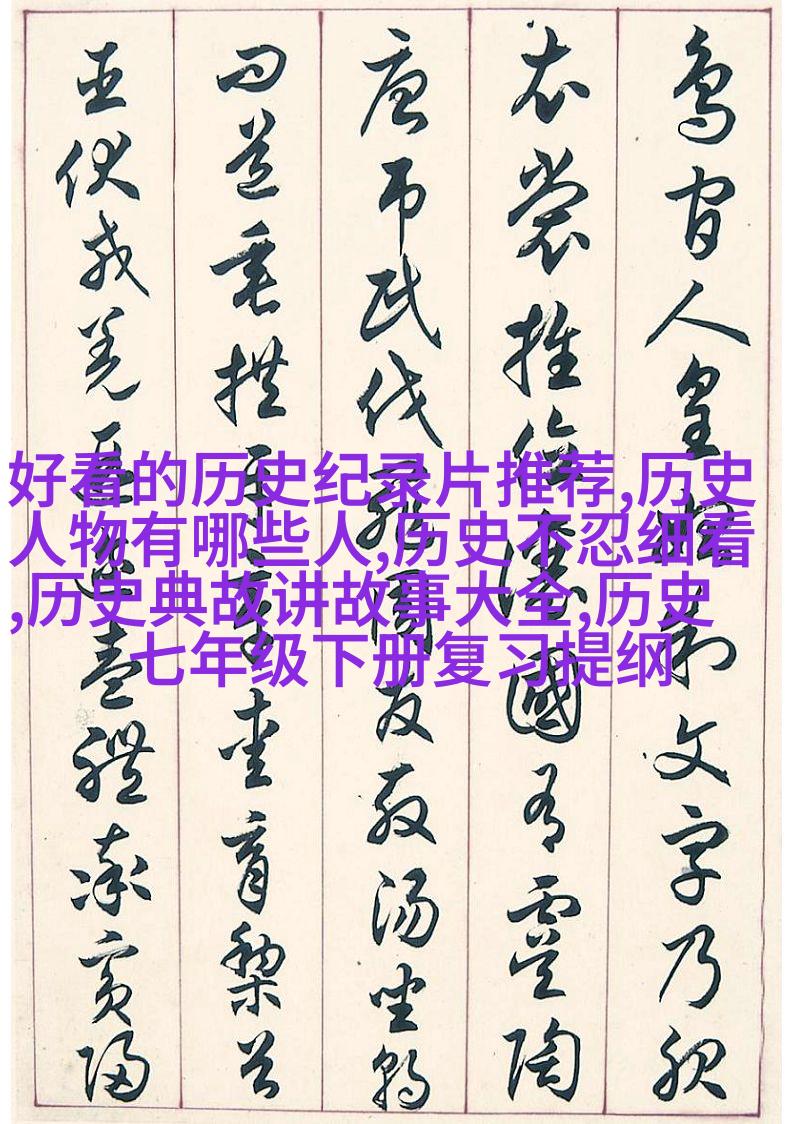 鳥官人皇始制文字乃服
衣裳推位讓國有虞陶
唐弔民伐罪周發殷湯坐朝
問道垂拱平章愛育黎首
臣伏戎羌遐邇壹體率賓歸
好看的历史纪录片推荐,历史
人物有哪些人,历史不忍细看
,历史典故讲故事大全,历史
七年级下册复习提纲